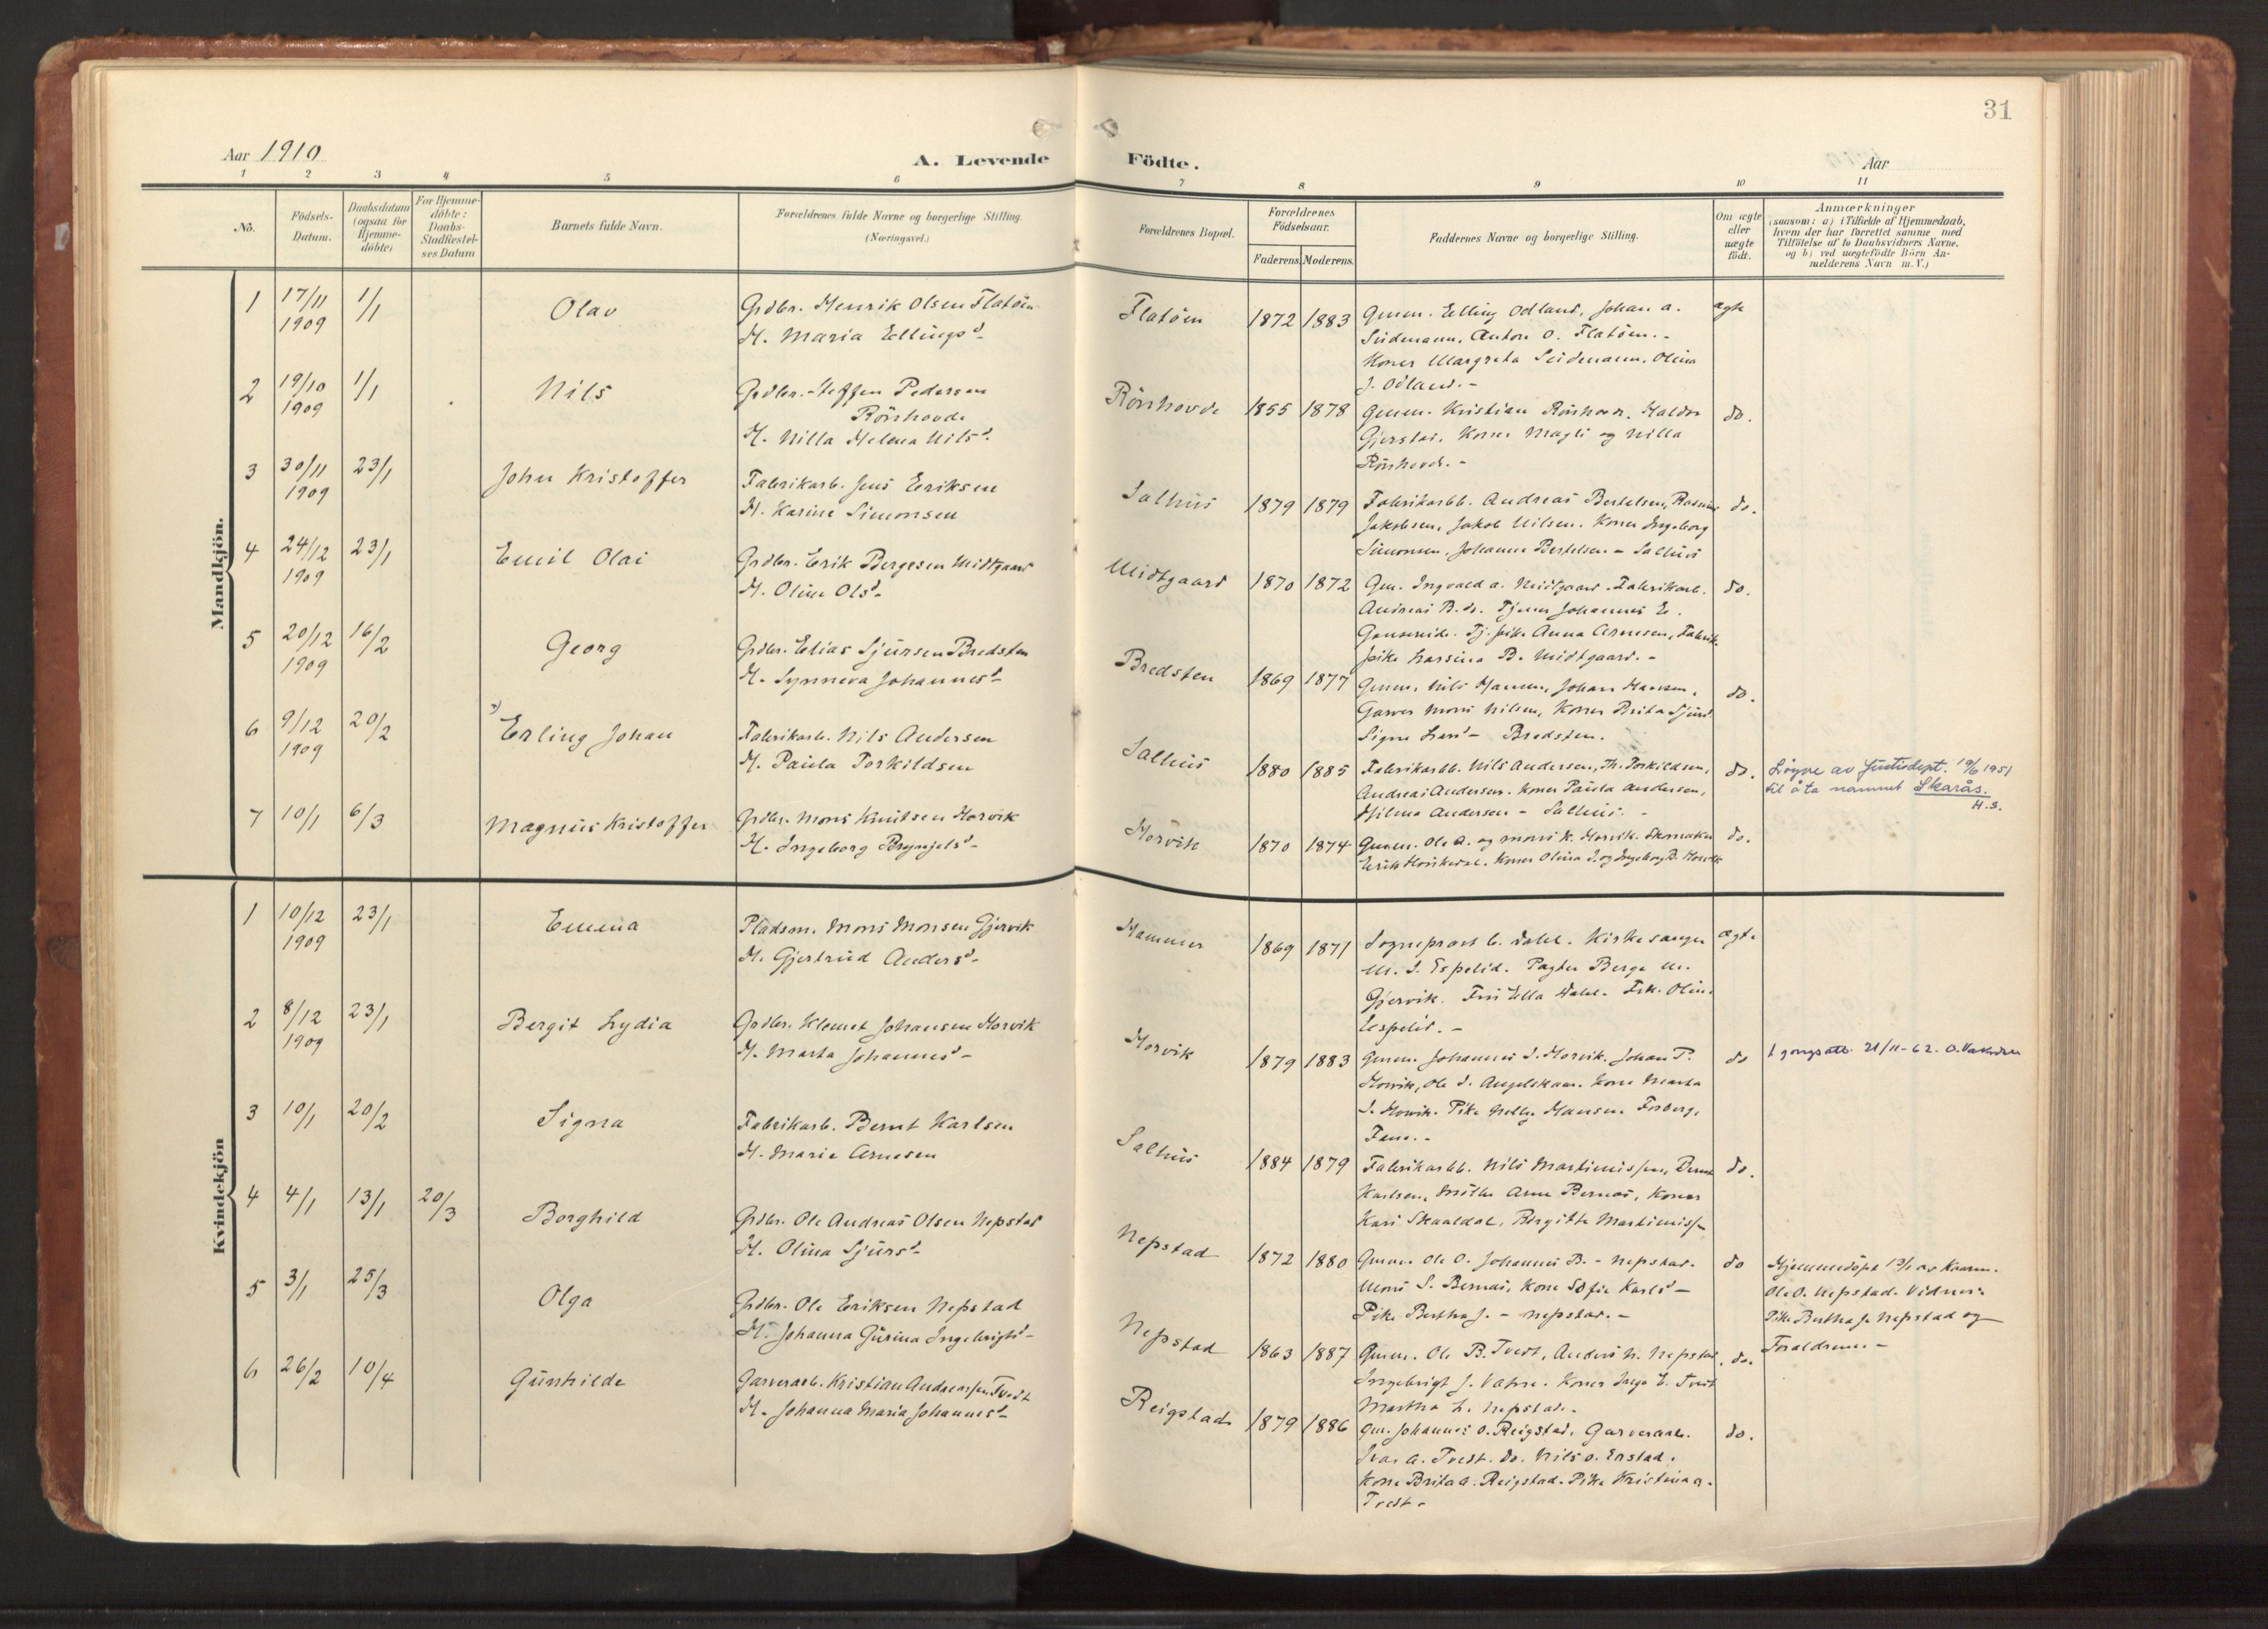 31
Aar 1910
A. Levende Födte.
Aar
1 2 3 4 5 6 7 8 9 10 11
No.
Födsels-Datum.
Daabsdatum (ogsaa for Hjemmedöbte)
For Hjemmedöbte: Daabs-Stadfæstelses Datum
Barnets fulde Navn.
Forældrenes fulde Navne og borgerlige Stilling.
(Næringsvei.)
Forældrenes Bopæl.
Forældrenes Födselsaar.
Faderens. Moderens.
Faddernes Navne og borgerlige Stilling.
Om ægte eller uægte födt.
Anmærkninger
(saasom: a) i Tilfælde af Hjemmedaab,
hvem der har forrettet samme med
Tilföielse af to Daabsvidners Navne,
og b) ved uægtefödte Börn An-
melderens Navn m.V.)
Mandkjön.
1 17/11 1909 1/1 Olav
Grdbr. Henrik Olsen Flatöen
H. Maria Ellingsd-
Flatöen 1872 1883
Gmen. Elling Odland, Johan A.
Seidemann, Anton O. Flatöen.-
Koner Margreta Seidemann, Olina
J. Odland.-
ægte
2 19/10 1909 1/1 Nils
Grdbr. Steffen Pedersen
Rönhovde
H. Nilla Helena Nilsd.
Rönhovde 1855 1878
Gmen. Kristian Rönhovd, Haldor
Gjerstad. Koner Magli og Nilla
Rönhovd.-
do.
3 30/11 1909 23/1 John Kristoffer
Fabrikarb. Jens Eriksen
H. Karine Simonsen
Salhus 1879 1879
Fabrikarbb. Andreas Bertelsen, Rasmus
Jakobsen, Jakob Nilsen. Koner Ingeborg
Simonsen, Johanne Bertelsen - Salhus
do.
4 24/12 1909 23/1 Emil Olai
Grdbr. Erik Bergesen Midtgaard
H. Oline Olsd-
Midtgaard 1870 1872
Gm. Ingvald A. Midtgaard. Fabrikarb.
Andreas B. do. Tjener Johannes E.
Tj. pike Anna Arnesen, Fabrik-
pike Lassina B. Midtgaard.-
do.
5 20/12 1909 16/2 Georg
Grdbr. Elias Sjursen Bredsten
H. Synneva Johannesd-
Bredsten 1869 1877
Gmen. Nils Hansen, Johan Hansen,
Garver Mons Nilsen, Koner Brita Sjursd.
Signe Larsd- Bredsten.
do.
6 9/12 1909 20/2 Erling Johan
Fabrikarb. Nils Andersen
H. Paula Torkildsen
Salhus 1880 1885
Fabrikarbb. Nils Andersen, Th. Torkildsen,
Andreas Andersen. Koner Paula Andersen,
Hilma Andersen - Salhus.-
do.
Löyve av Justisdept. 19/6 1951
til å ta namnet Skarås.
H.S.
7 10/1 6/3 Magnus Kristoffer
Grdbr. Mons Knutsen Horvik
H. Ingeborg Brynjelsd-
Horvik 1870 1874
Gmen. Ole A. og Mons K. Horvik. Skomaker
Koner Olina J. og Ingeborg B. Horvik
do.
Kvindekjön
1 10/12 1909 23/1 Emma
Pladsm. Mons Monsen Gjervik
H. Gjertrud Andersd-
Hammer 1869 1871
Sogneprest C. Dahl. Kirkesanger
M. J. Espelid. Pagter Berge M.
Gjervik. Fru Ella Dahl. Frk. Olina
Espelid.-
ægte
2 8/12 1909 23/1 Bergit Lydia
Grdbr. Klemet Johansen Horvik
H. Marta Johannesd-
Horvik 1879 1883
Gmen. Johannes J. Horvik. Johan P.
Horvik, Ole J. Angelskaar. Kone Marta
J. Horvik. Pike Nelly Hansen Forberg,
Fana.-
do
21/11-62.
3 10/1 20/2 Signa
Fabrikarb. Bernt Karlsen
H. Marie Arnesen
Salhus 1884 1879
Fabrikarbb. Nils Martinussen,
Karlsen, Möller Arne Bernas, Koner
Kari Skaaldal, Birgitte Martinuss-
do.
4 4/1 13/1 20/3 Borghild
Grdbr. Ole Andreas Olsen Nepstad
H. Olina Sjursd-
Nepstad 1872 1880
Gmen. Ole O. Johannes B. - Nepstad.
Mons S. Bernas, Kone Sofie Karlsd-
Pike Bertha J. - Nepstad.-
do
Hjemmedöpt 13/1 av
Ole O. Nepstad. Vidner:
Pike Bertha J. Nepstad og
Forældrene-
5 3/1 25/3 Olga
Grdbr. Ole Eriksen Nepstad
H. Johanna Gurina Ingebrigtsd-
Nepstad 1863 1887
Gmen. Ole B. Tvedt, Anders N. Nepstad,
Ingebrigt J. Koner Inga E. Tvedt
Martha L. Nepstad.-
do.
6 26/2 10/4 Gunhilde
Garverarb. Kristian Andreassen Tvedt
H. Johanna Maria Johannesd-
Reigstad 1879 1886
Gm. Johannes O. Reigstad, Garverarb.
Ivar A. Tvedt. Do. Nils O. Erstad.
Kone Brita A. Reigstad. Pike Kristina A.
Tvedt-
do.